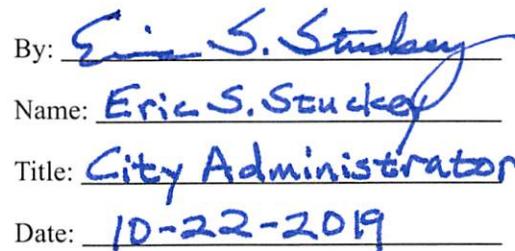 By: Eric S. Stuckey
Name: Eric S. Stuckey
Title: City Administrator
Date: 10-22-2019